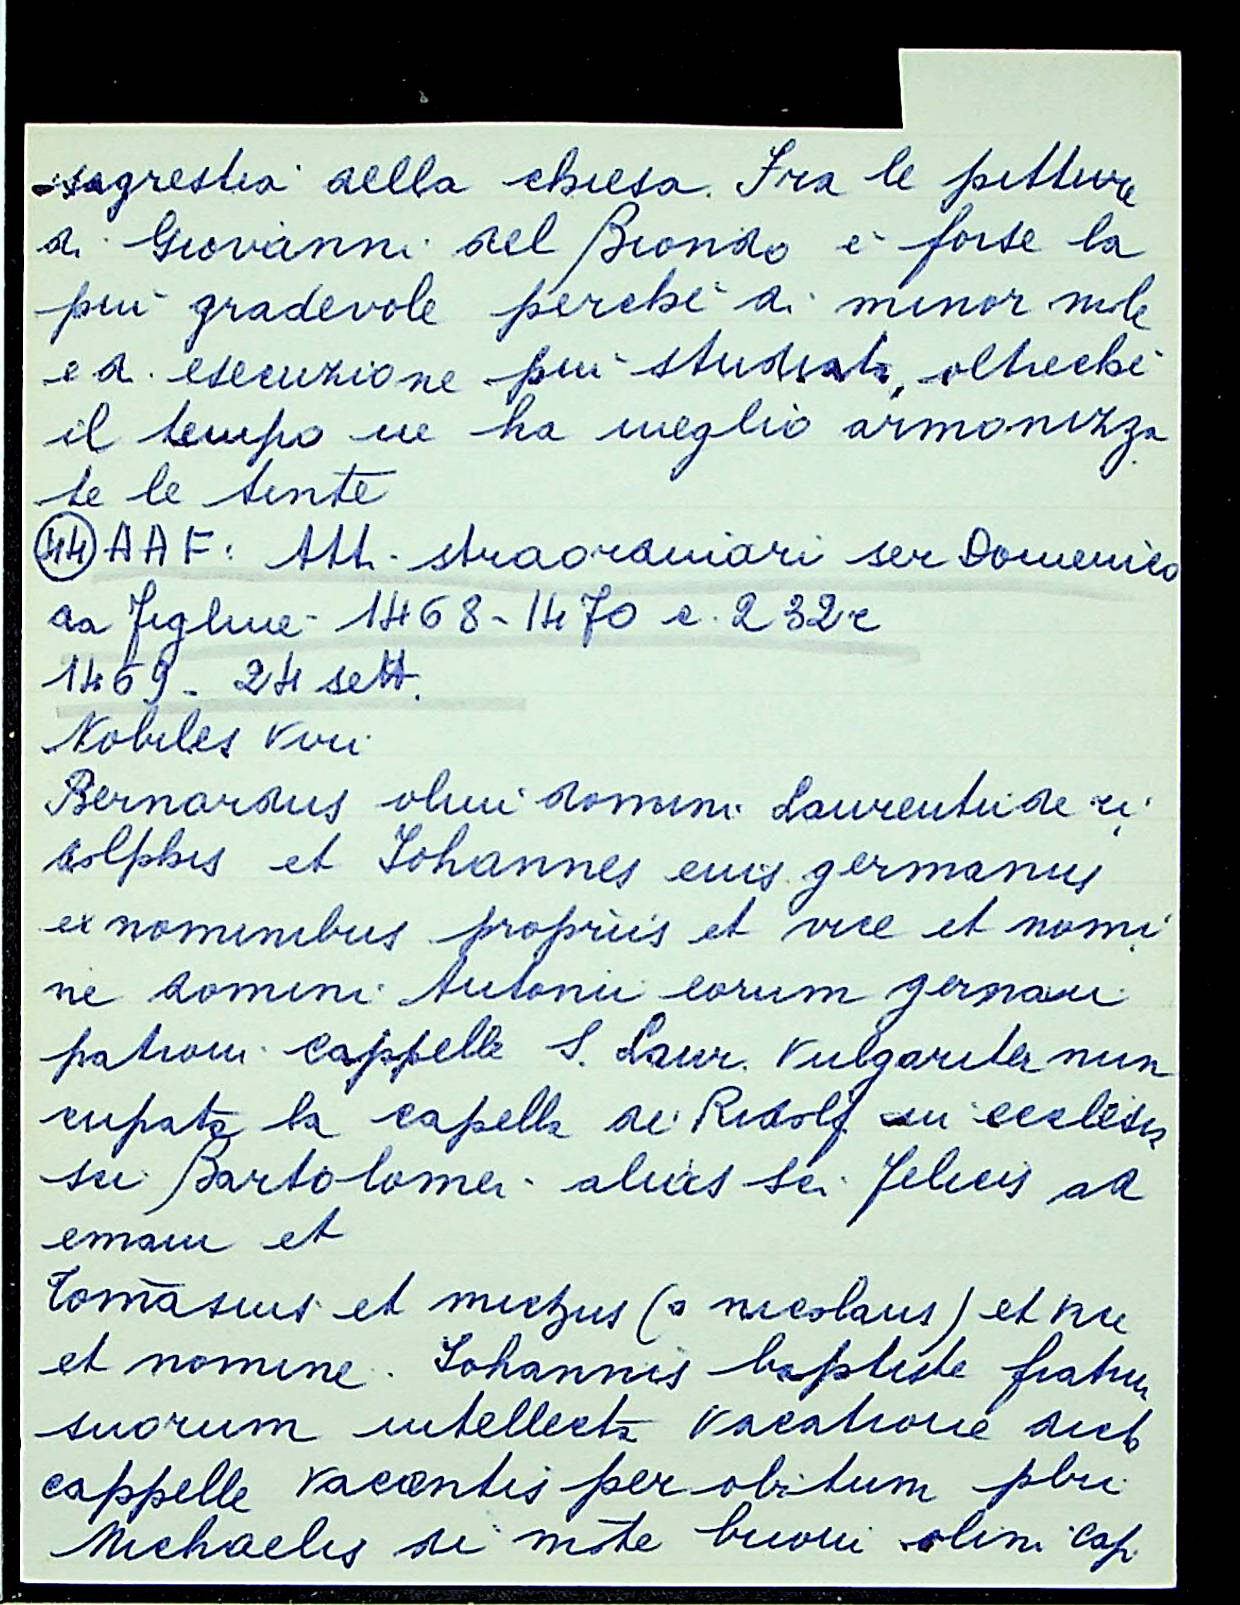 sagrestia della chiesa. Fra le pitture
di Giovanni del Biondo è forse la
più gradevole perchè di minor mole
e di esecuzione più studiata, oltrechè
il tempo ne ha meglio armonizza
te le tinte
(44) AAF: Atti straordinari ser Domenico
da Figline - 1468-1470 c. 232r
1469 - 24 sett.
Nobiles viri
Bernardus olim domini Laurentii de ri
dolphis et Johannes eius germanus
ex nominibus propriis et vice et nomi
ne domini Antonii eorum germani
patroni cappelle S. Laur. vulgariter nun
cupata la capella de Ridolfi in ecclesia
sci Bartolomei alias sci Felicis ad
emam et
Tomāsius et michus (o nicolaus) et vice
et nomine Johannis baptiste fratrum
suorum intellecta vacatione dicte
cappelle vacantis per obitum pbri
Michaelis de mōte buoni olim cap.